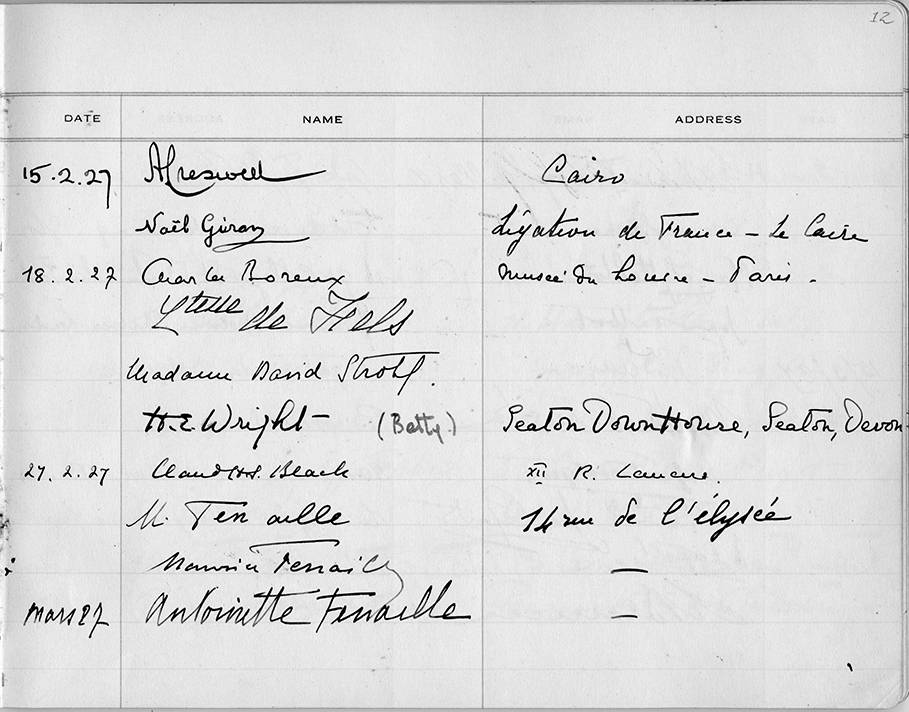 12
DATE NAME ADDRESS
15.2.27 ACreswell Cairo
Noël Giron Légation de France - Le Caire
18.2.27 Charles Boreux Musée du Louvre - Paris.
Ctesse de Fels
Madame David Strohl.
H.E. Wright (Betty) Seaton Down House, Seaton, Devon
27.2.27 Claud H.S. Black XII R. Lancers.
M. Fenaille 14 rue de l'élysée
Maurice Fenaille —
Mars 27 Antoinette Fenaille —